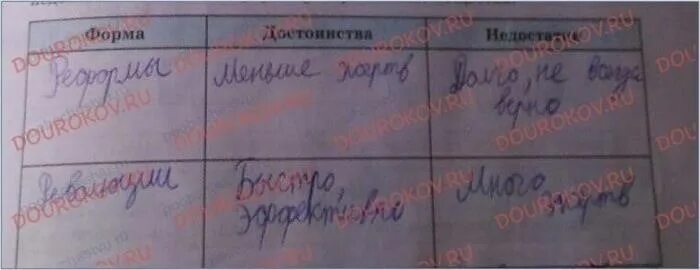 Форма Достоинства Недостатки
Реформы Меньше жертв Долго, не всегда
верно
Революции Быстро, Много
эффективно жертв
DOUROKOV.RU